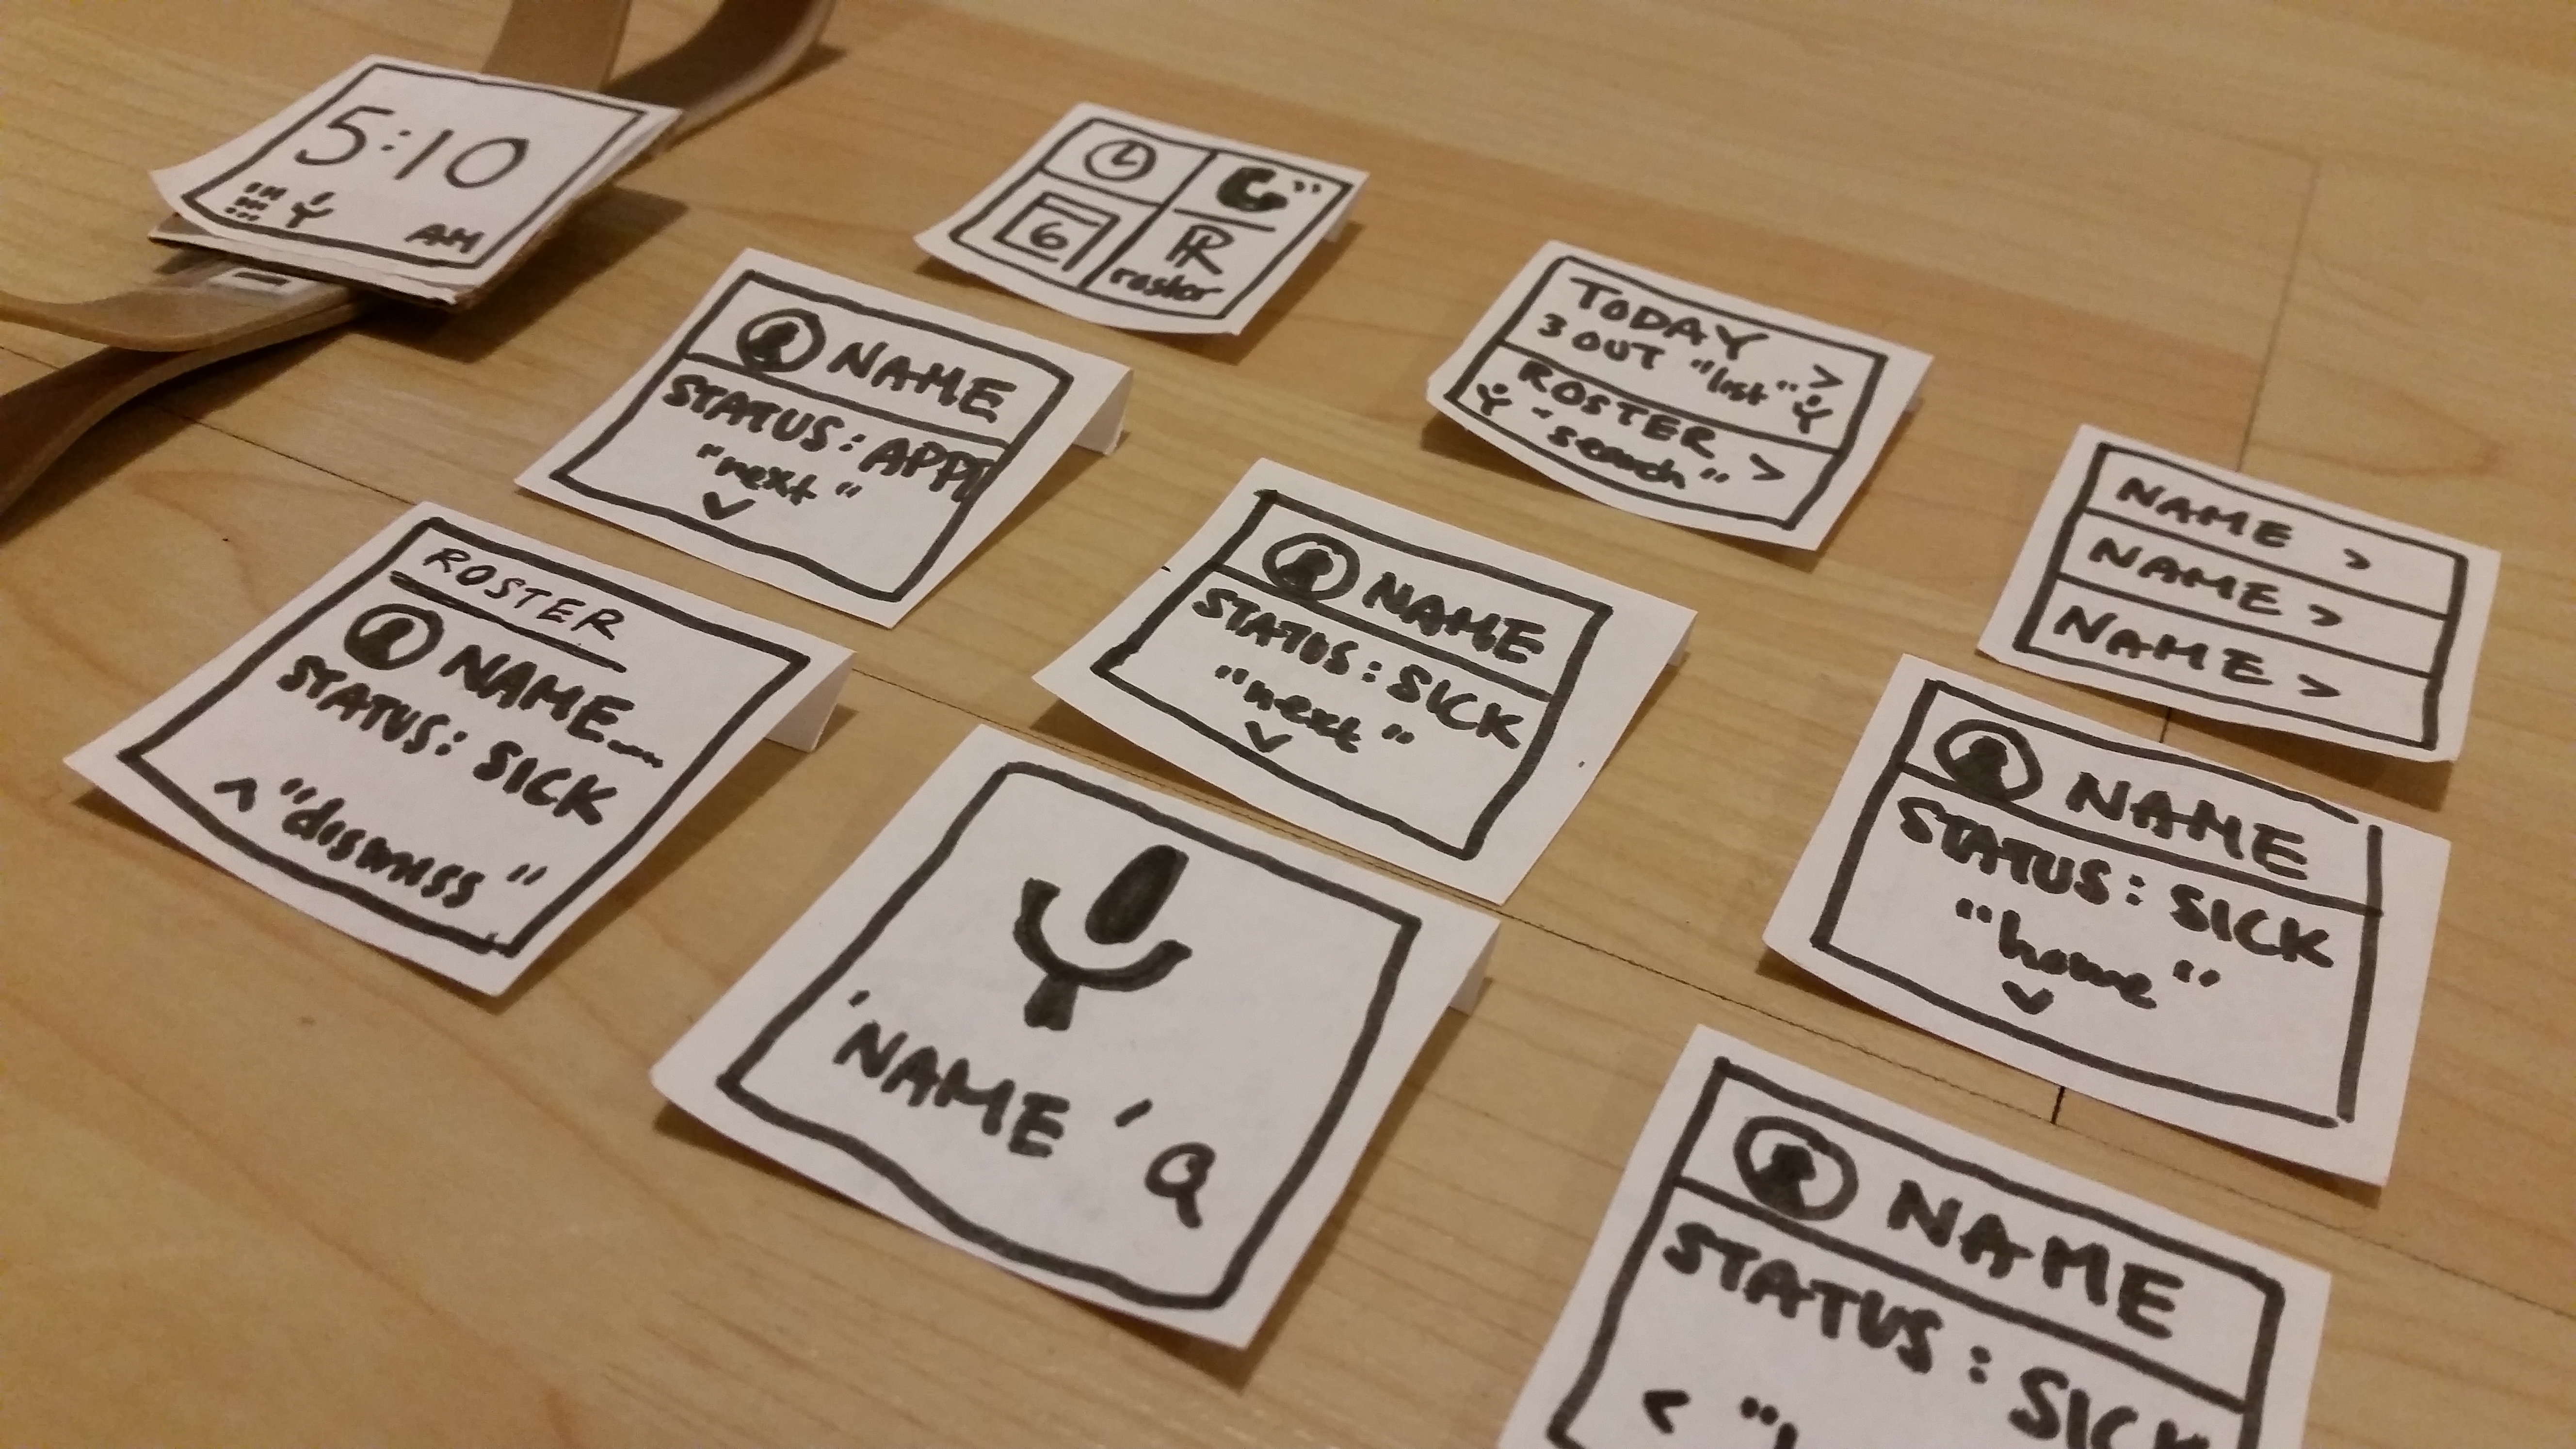 5:10
AM
6
R
roster
TODAY >
3 OUT "list"
ROSTER >
- "search"
NAME
STATUS: APPT
"next"
NAME >
NAME >
NAME >
ROSTER
NAME...
STATUS: SICK
^ "dismiss"
NAME
STATUS: SICK
"next"
NAME
STATUS: SICK
"home"
'NAME'
NAME
STATUS: SICK
<